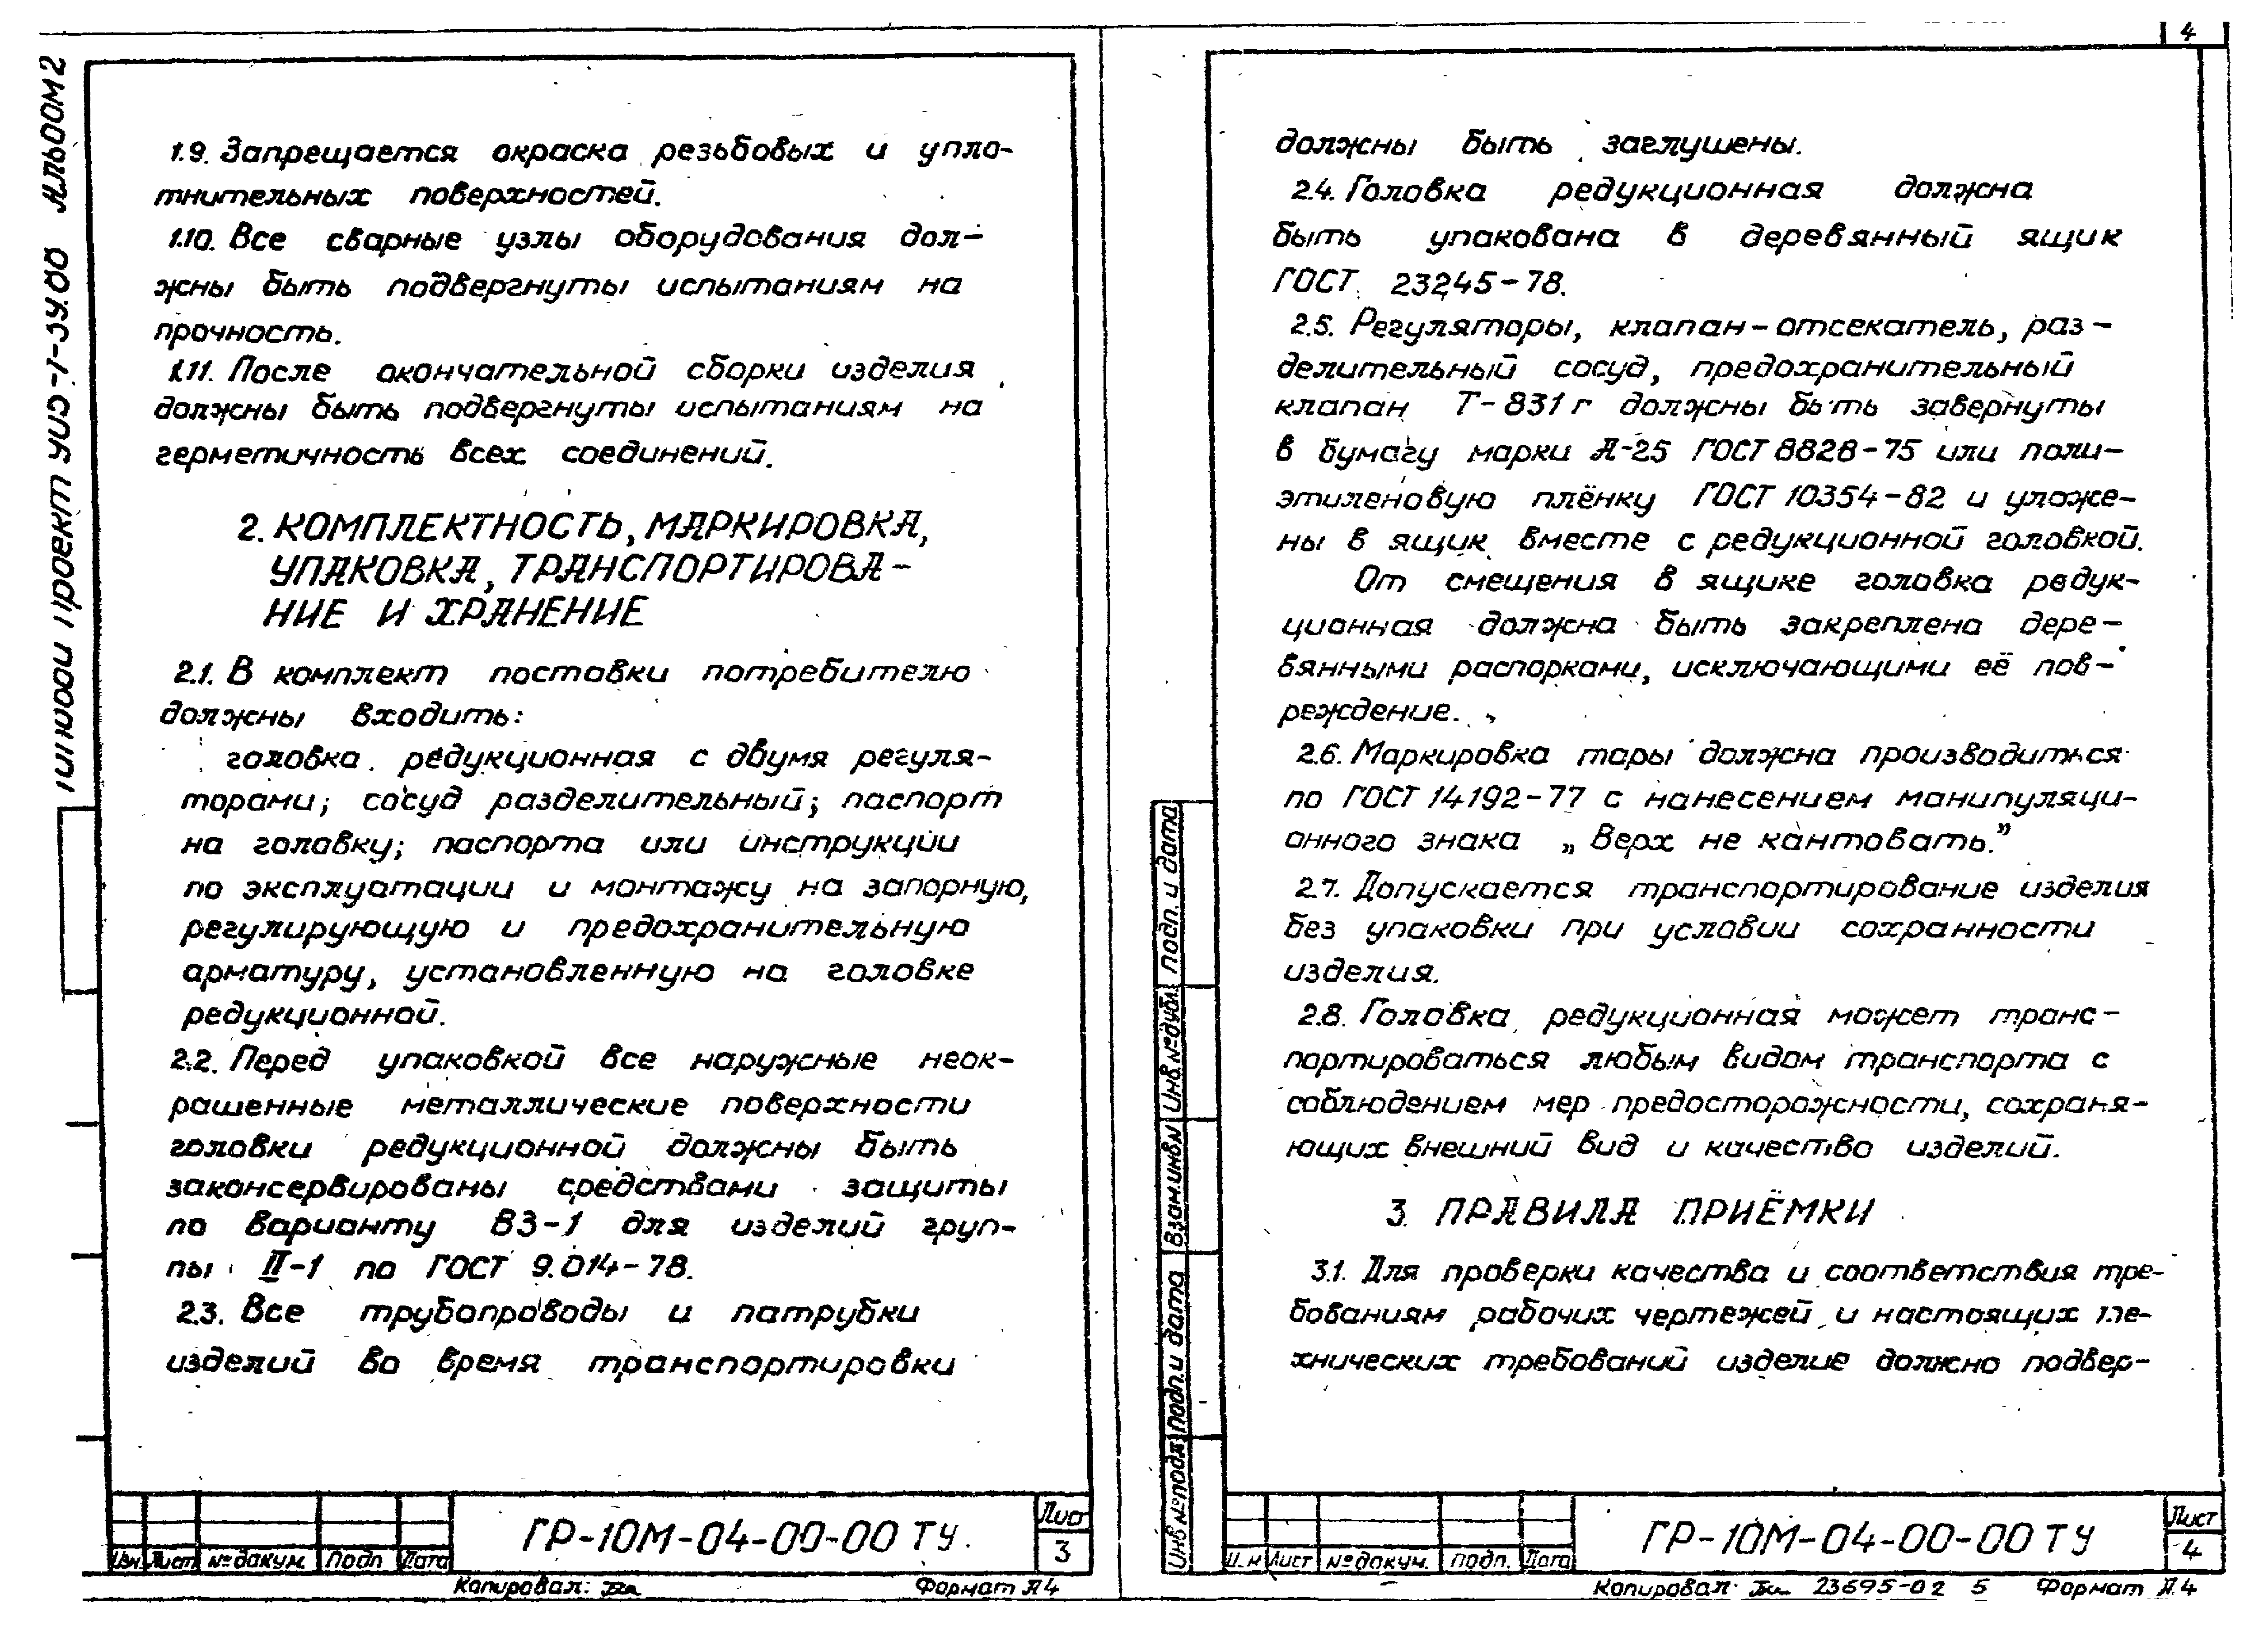 4
Альбом 2
1.9. Запрещается окраска резьбовых и упло-
тнительных поверхностей.
1.10. Все сварные узлы оборудования дол-
жны быть подвергнуты испытаниям на
прочность.
1.11. После окончательной сборки изделия
должны быть подвергнуты испытаниям на
герметичность всех соединений.
2. КОМПЛЕКТНОСТЬ, МАРКИРОВКА,
УПАКОВКА, ТРАНСПОРТИРОВА-
НИЕ И ХРАНЕНИЕ
2.1. В комплект поставки потребителю
должны входить:
головка редукционная с двумя регуля-
торами; сосуд разделительный; паспорт
на головку; паспорта или инструкции
по эксплуатации и монтажу на запорную,
регулирующую и предохранительную
арматуру, установленную на головке
редукционной.
2.2. Перед упаковкой все наружные неок-
рашенные металлические поверхности
головки редукционной должны быть
законсервированы средствами защиты
по варианту ВЗ-1 для изделий груп-
пы II-1 по ГОСТ 9.014-78.
2.3. Все трубопроводы и патрубки
изделий во время транспортировки
Изм. Лист № докум. Подп Дата
ГР-10М-04-00-00 ТУ.
Лист
3
Копировал:
Формат А4
должны быть заглушены.
2.4. Головка редукционная должна
быть упакована в деревянный ящик
ГОСТ 23245-78.
2.5. Регуляторы, клапан-отсекатель, раз-
делительный сосуд, предохранительный
клапан Т-831г должны быть завернуты
в бумагу марки А-25 ГОСТ 8828-75 или поли-
этиленовую плёнку ГОСТ 10354-82 и уложе-
ны в ящик вместе с редукционной головкой.
От смещения в ящике головка редук-
ционная должна быть закреплена дере-
вянными распорками, исключающими её пов-
реждение.
2.6. Маркировка тары должна производиться
по ГОСТ 14192-77 с нанесением манипуляци-
онного знака „Верх не кантовать."
2.7. Допускается транспортирование изделия
без упаковки при условии сохранности
изделия.
2.8. Головка редукционная может транс-
портироваться любым видом транспорта с
соблюдением мер предосторожности, сохраня-
ющих внешний вид и качество изделий.
3. ПРАВИЛА ПРИЁМКИ
3.1. Для проверки качества и соответствия тре-
бованиям рабочих чертежей и настоящих те-
хнических требований изделие должно подвер-
Инв № подл. Подп. и дата Взам. инв № Инв. № дубл. Подп. и дата
Лист № докум. Подп. Дата
ГР-10М-04-00-00 ТУ
Лист
4
Копировал: 23695-02 5 Формат А4